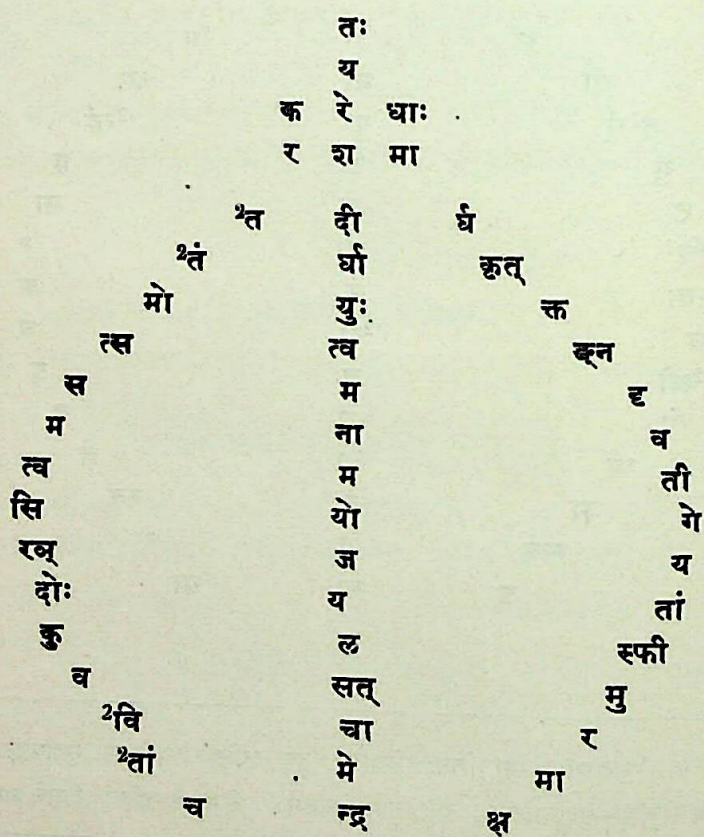 तः
य
क रे धाः
र श मा
²त दी र्घ
²तं र्घा कृत्
मो युः क्त
त्स त्व ङ्न
स म दृ
म ना व
त्व म ती
सि यो गे
रञ् ज य
दोः य तां
कु ल स्फी
व सत् मु
²वि चा र
²तां मे मा
च न्द्र क्ष